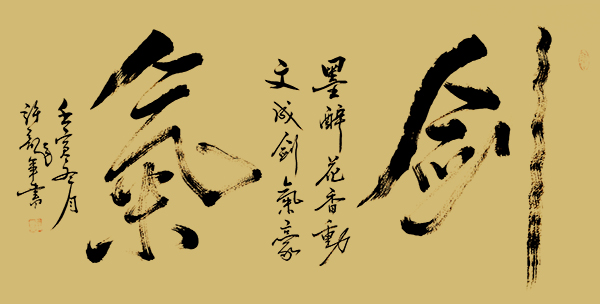 剑
墨醉花香動
文成剑氣豪
氣
壬寅月
許年書